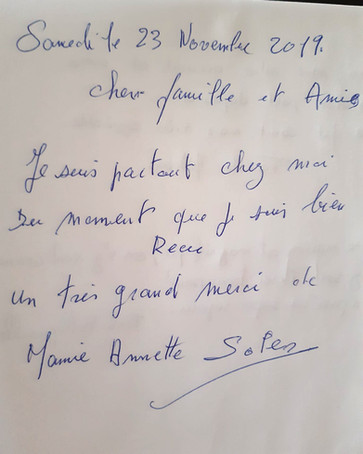 Samedi le 23 Novembre 2019.
cher famille et Amies
Je suis partout chez moi
Du moment que Je suis bien
Recue
un très grand merci de
Mamie Annette Solen